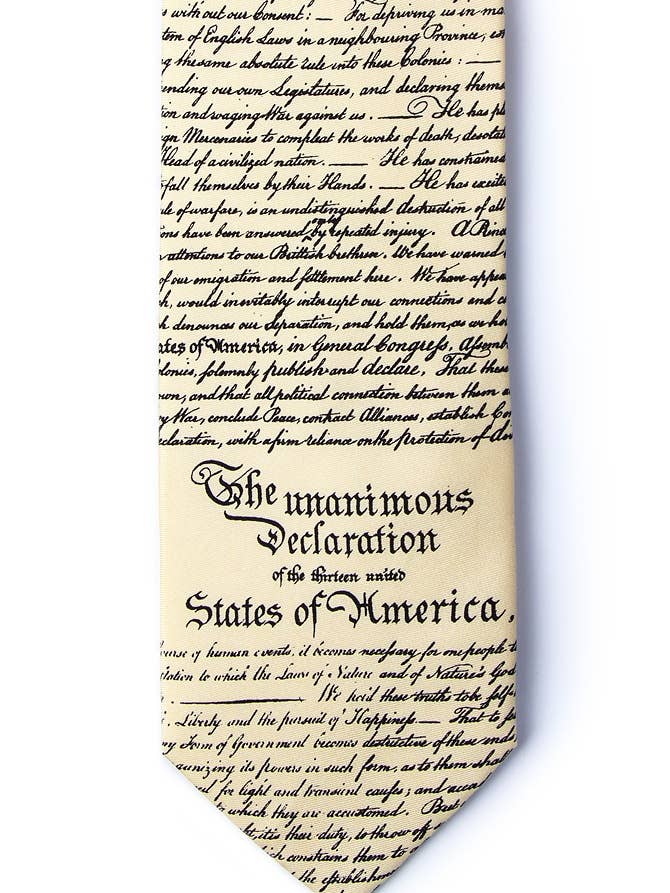 s without our Consent: — For depriving us in ma
tem of English Laws in a neighbouring Province, est
g the same absolute rule into these Colonies: —
ending our own Legislatures, and declaring thems
ion and waging War against us. — He has pl
ign Mercenaries to compleat the works of death, desolat
Head of a civilized nation. — He has constrained
fall themselves by their Hands. — He has excite
ule of warfare, is an undistinguished destruction of all
ons have been answered only by repeated injury. A Prince
n attentions to our Brittish brethren. We have warned
of our emigration and settlement here. We have appea
h, would inevitably interrupt our connections and c
h denounces our Separation, and hold them, as we ho
ates of America, in General Congress, Assemb
olonies, solemnly publish and declare, That these
own, and that all political connection between them a
y War, conclude Peace, contract Alliances, establish Co
eclaration, with a firm reliance on the protection of div
The unanimous
Declaration
of the thirteen united
States of America,
ourse of human events, it becomes necessary for one people t
tation to which the Laws of Nature and of Nature's God
We hold these truths to be self
, Liberty and the pursuit of Happiness. — That to se
ny Form of Government becomes destructive of these ends,
ganizing its powers in such form, as to them shal
ed for light and transient causes; and acco
to which they are accustomed. But
ht, it is their duty, to throw off
hich constrains them to
the establishmen